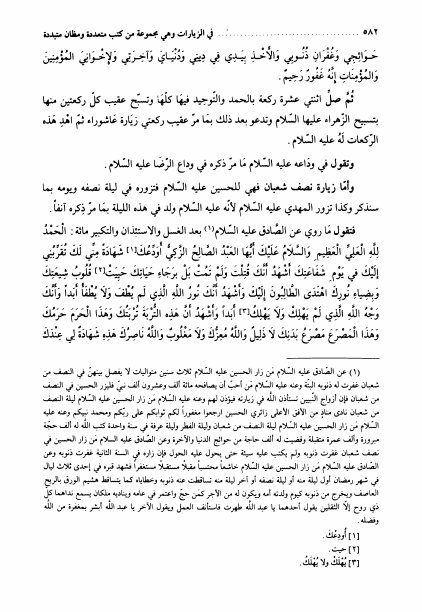 ٥٨٢ في الزيارات وهي مجموعة من كتب متعددة ومظان متبددة
حَوائِجي وَغُفْرانِ ذُنُوبي وَالأَخْذِ بِيَدي في ديني وَدُنْيايَ وَآخِرَتي وَلإِخْوانِيَ الْمُؤْمِنينَ
وَالْمُؤْمِناتِ إِنَّهُ غَفُورٌ رَحيمٌ.
ثُمَّ صلِّ اثنتي عشرة ركعة بالحمد والتّوحيد فيها كلّها وتسبّح عقيب كلّ ركعتين منها
بتسبيح الزهراء عليها السّلام وتدعو بعد ذلك بما مرّ عقيب ركعتي زيارة عاشوراء ثمّ اهدِ هَذه
الرّكعات لَهُ عليه السّلام.
وتقول في وداعه عليه السّلام مَا مرّ ذكره في وداع الرّضا عليه السّلام.
وأمّا زيارة نصف شعبان فهي للحسين عليه السّلام فتزوره في ليلة نصفه ويومه بما
سنذكر وكذا تزور المهدي عليه السّلام لأنّه عليه السّلام ولد في هذه الليلة بمَا مرّ ذِكره آنفاً.
فتقول مَا روي عن الصّادق عليه السّلام(١) بعد الغسل والاستئذان والتكبير مائة: الْحَمْدُ
لِلَّهِ الْعَلِيِّ الْعَظيمِ وَالسَّلامُ عَلَيْكَ أَيُّهَا الْعَبْدُ الصَّالِحُ الزَّكِيُّ أَوْدَعْتُكَ[١] شَهادَةً مِنّي لَكَ تُقَرِّبُني
إِلَيْكَ في يَوْمِ شَفاعَتِكَ أَشْهَدُ أَنَّكَ قُتِلْتَ وَلَمْ تَمُتْ بَلْ بِرَجاءِ حَياتِكَ حَيِيَتْ[٢] قُلُوبُ شيعَتِكَ
وَبِضِياءِ نُورِكَ اهْتَدَى الطَّالِبُونَ إِلَيْكَ وَأَشْهَدُ أَنَّكَ نُورُ اللَّهِ الَّذي لَمْ يُطْفَ وَلا يُطْفَأُ أَبَداً وَأَنَّكَ
وَجْهُ اللَّهِ الَّذي لَمْ يَهْلِكْ وَلا يَهْلِكُ[٣] أَبَداً وَأَشْهَدُ أَنَّ هَذِهِ التُّرْبَةَ تُرْبَتُكَ وَهَذَا الْحَرَمَ حَرَمُكَ
وَهَذَا الْمَصْرَعَ مَصْرَعُ بَدَنِكَ لا ذَليلَ وَاللَّهِ مُعِزُّكَ وَلا مَغْلُوبَ وَاللَّهِ ناصِرُكَ هَذِهِ شَهادَةٌ لي عِنْدَكَ
(١) عن الصّادق عليه السّلام مَن زار الحسين عليه السّلام ثلاث سنين متواليات لا يفصل بينهنّ في النصف من
شعبان غفرت له ذنوبه البتّة وعنه عليه السّلام مَن أحبّ أن يصافحه مائة ألف وعشرون ألف نبيّ فليزر الحسين في النصف
من شعبان فإن أرواح النّبيين تستأذن اللَّه في زيارته فيؤذن لهم وعنه عليه السلام إذا كان ليلة النصف
من شعبان نادى مناد من الأفق الأعلى زائري الحسين ارجعوا مغفوراً لكم ثوابكم على ربّكم ومحمد نبيكم وعنه عليه
السّلام مَن زار الحسين عليه السّلام ليلة النصف من شعبان وليلة الفطر وليلة عرفة في سنة واحدة كتب اللَّه له ألف حجّة
مبرورة وألف عمرة متقبلة وقضيت له ألف حاجة من حوائج الدنيا والآخرة وعن الصّادق عليه السلام مَن زار الحسين في
نصف شعبان غفرت ذنوبه ولم يكتب عليه سيئة حتى يحول عليه الحول فإن زاره في السنة الثانية غفرت ذنوبه وعن
الصّادق عليه السّلام مَن زار الحسين عليه السّلام خاشعاً محتسباً مقبلاً مستقيلاً مستغفراً فشهد قبره في إحدى ثلاث ليال
في شهر رمضان أول ليلة منه أو ليلة نصفه أو آخر ليلة منه تساقطت عنه ذنوبه وخطاياه كما يتساقط هشيم الورق بالريح
العاصف ويخرج من ذنوبه كيوم ولدته أمه ويكون له من الأجر كمَن حجّ واعتمر في عامه ويناديه ملكان يسمع نداءهما كلّ
ذي روح إلّا الثقلين يقول أحدهما يا عبد اللَّه طهرت فاستأنف العمل ويقول الآخر يا عبد اللَّه أبشر بمغفرة من اللَّه
وفضله.
[١] أُودِعُكَ.
[٢] حيت.
[٣] يُهْلَكْ ولا يُهْلَكُ.